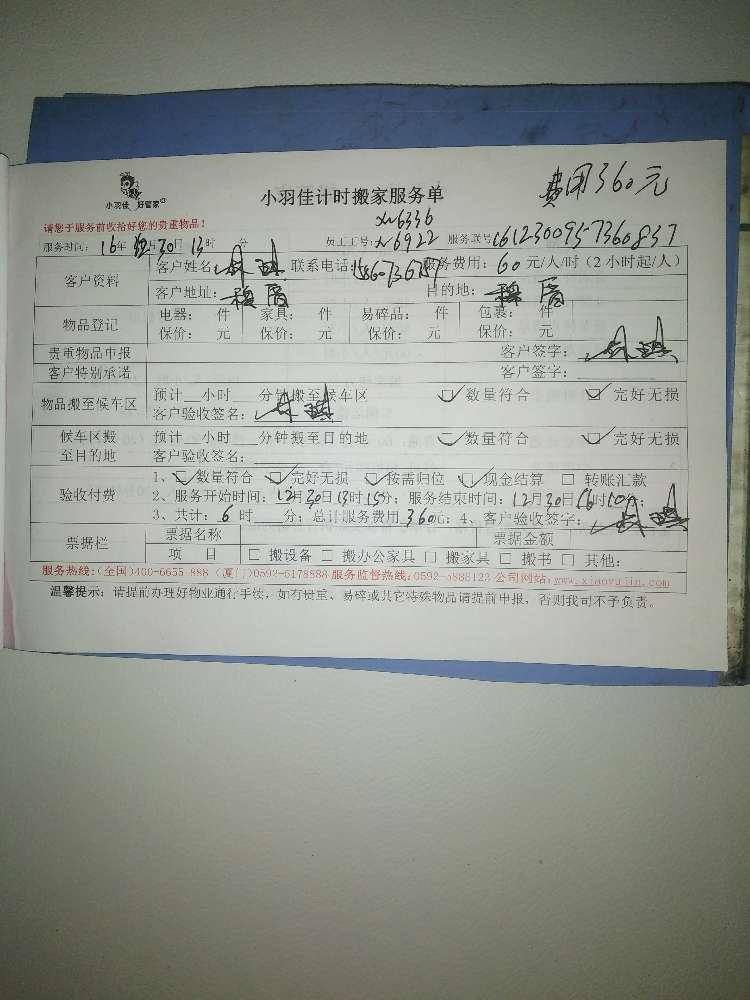 费用360元
小羽佳 好管家
小羽佳计时搬家服务单
请您于服务前收拾好您的贵重物品！
xm6336
服务时间： 16年12月30日13时 分 员工工号：xm6922 服务联号1612300957360837
客户资料 客户姓名： 联系电话： 服务费用：60元/人/时（2小时起/人）
客户地址： 目的地：
物品登记 电器： 件 家具： 件 易碎品： 件 包裹： 件
保价： 元 保价： 元 保价： 元 保价： 元
贵重物品申报 客户签字：
客户特别承诺 客户签字：
物品搬至候车区 预计__小时___分钟搬至候车区 ☑数量符合 ☑完好无损
客户验收签名：
候车区搬至目的地 预计__小时___分钟搬至目的地 ☑数量符合 ☑完好无损
客户验收签名：
验收付费 1、☑数量符合 ☑完好无损 ☑按需归位 ☑现金结算 □转账汇款
2、服务开始时间：12月30日13时15分；服务结束时间：12月30日16时10分；
3、共计：6时___分；总计服务费用360元；4、客户验收签字：
票据栏 票据名称 票据金额
项 目 □搬设备 □搬办公家具 □搬家具 □搬书 □其他：
服务热线：（全国）400-6655-888（厦门）0592-6178888 服务监督热线：0592-5888123 公司网站：www.xiaoyujia.com
温馨提示：请提前办理好物业通行手续，如有贵重、易碎或其它特殊物品请提前申报，否则我司可不予负责。